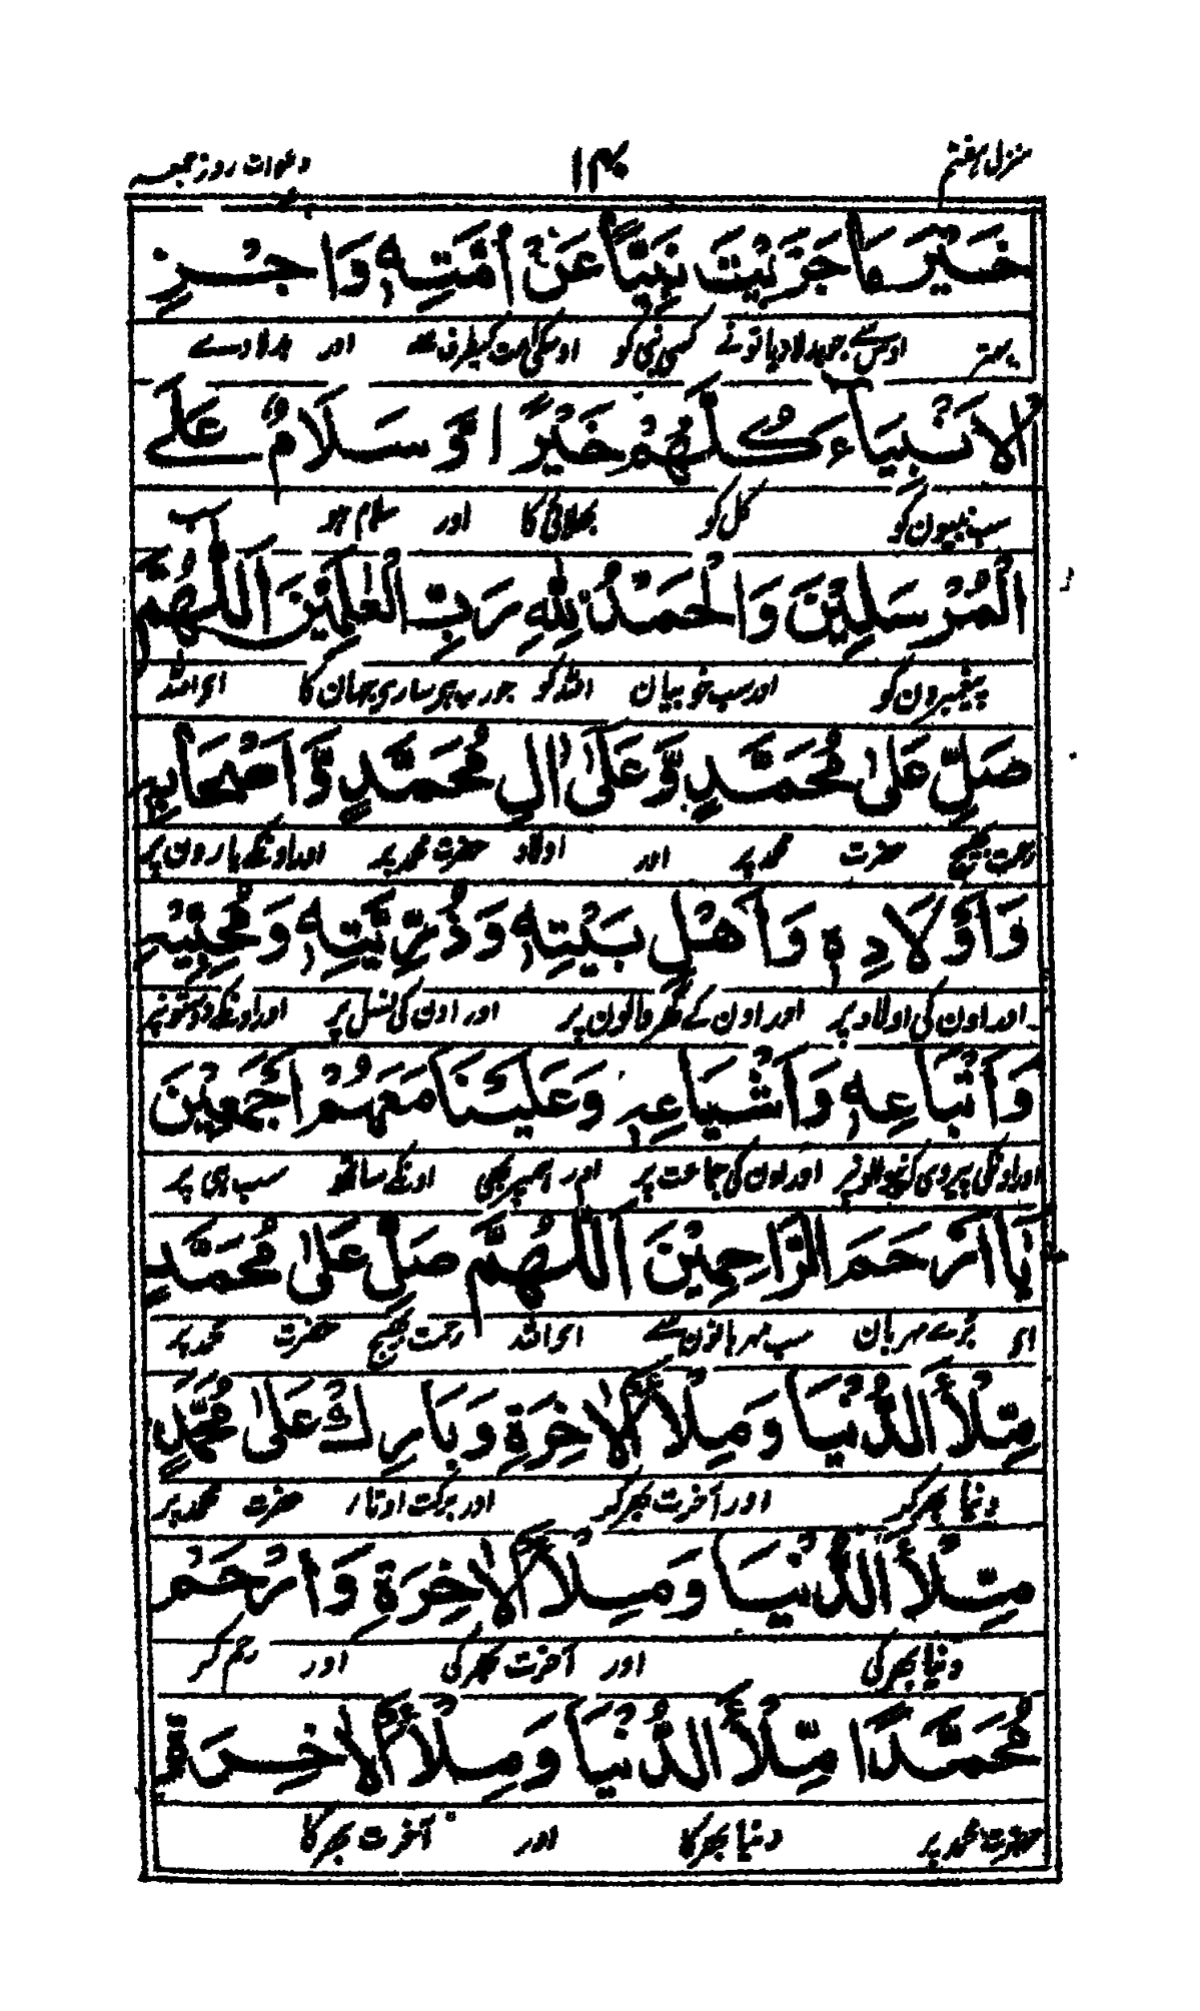 منزل ہفتم ۱۴۰ دعوات روز جمعہ
خَيْرَ مَا جَزَيْتَ نَبِيًّا عَنْ اُمَّتِهٖ وَاجْزِ
بہتر اوس سے جو بدلا دیا تو نے کسی نبی کو اوسکی امت کیطرف سے اور بدلا دے
الْاَنْبِيَآءَ كُلَّهُمْ خَيْرًا وَّ سَلَامٌ عَلَى
سب نبیون کو کل کو بھلائی کا اور سلام ہو سب
الْمُرْسَلِيْنَ وَالْحَمْدُ لِلّٰهِ رَبِّ الْعٰلَمِيْنَ اَللّٰهُمَّ
پیغمبرون کو اور سب خوبیان اللہ کو جو رب ہی ساری جہان کا ای اللہ
صَلِّ عَلٰى مُحَمَّدٍ وَّعَلٰى اٰلِ مُحَمَّدٍ وَّاَصْحَابِهٖ
رحمت بھیج حضرت محمد پر اور اولاد حضرت محمد پر اور اونکے یارون پر
وَاَوْلَادِهٖ وَاَهْلِ بَيْتِهٖ وَذُرِّيَّتِهٖ وَمُحِبِّيْهِ
اور اون کی اولاد پر اور اون کے گھر والون پر اور اون کی نسل پر اور اونکے دوستونپر
وَاَتْبَاعِهٖ وَاَشْيَاعِهٖ وَعَلَيْنَا مَعَهُمْ اَجْمَعِيْنَ
اور اونکی پیروی کرنیوالونپر اور اون کی جماعت پر اور ہمپر بھی اونکے ساتھ سب ہی پر
يَا اَرْحَمَ الرَّاحِمِيْنَ اَللّٰهُمَّ صَلِّ عَلٰى مُحَمَّدٍ
ای بڑے مہربان سب مہربانون سے ای اللہ رحمت بھیج حضرت محمد پر
مِّلْأَ الدُّنْيَا وَمِلْأَ الْاٰخِرَةِ وَبَارِكْ عَلٰى مُحَمَّدٍ
دنیا بھر کو اور آخرت بھر کو اور برکت اوتار حضرت محمد پر
مِّلْأَ الدُّنْيَا وَمِلْأَ الْاٰخِرَةِ وَارْحَمْ
دنیا بھر کی اور آخرت بھر کی اور رحم کر
مُحَمَّدًا مِّلْأَ الدُّنْيَا وَمِلْأَ الْاٰخِرَةِ
حضرت محمد پر دنیا بھر کا اور آخرت بھر کا